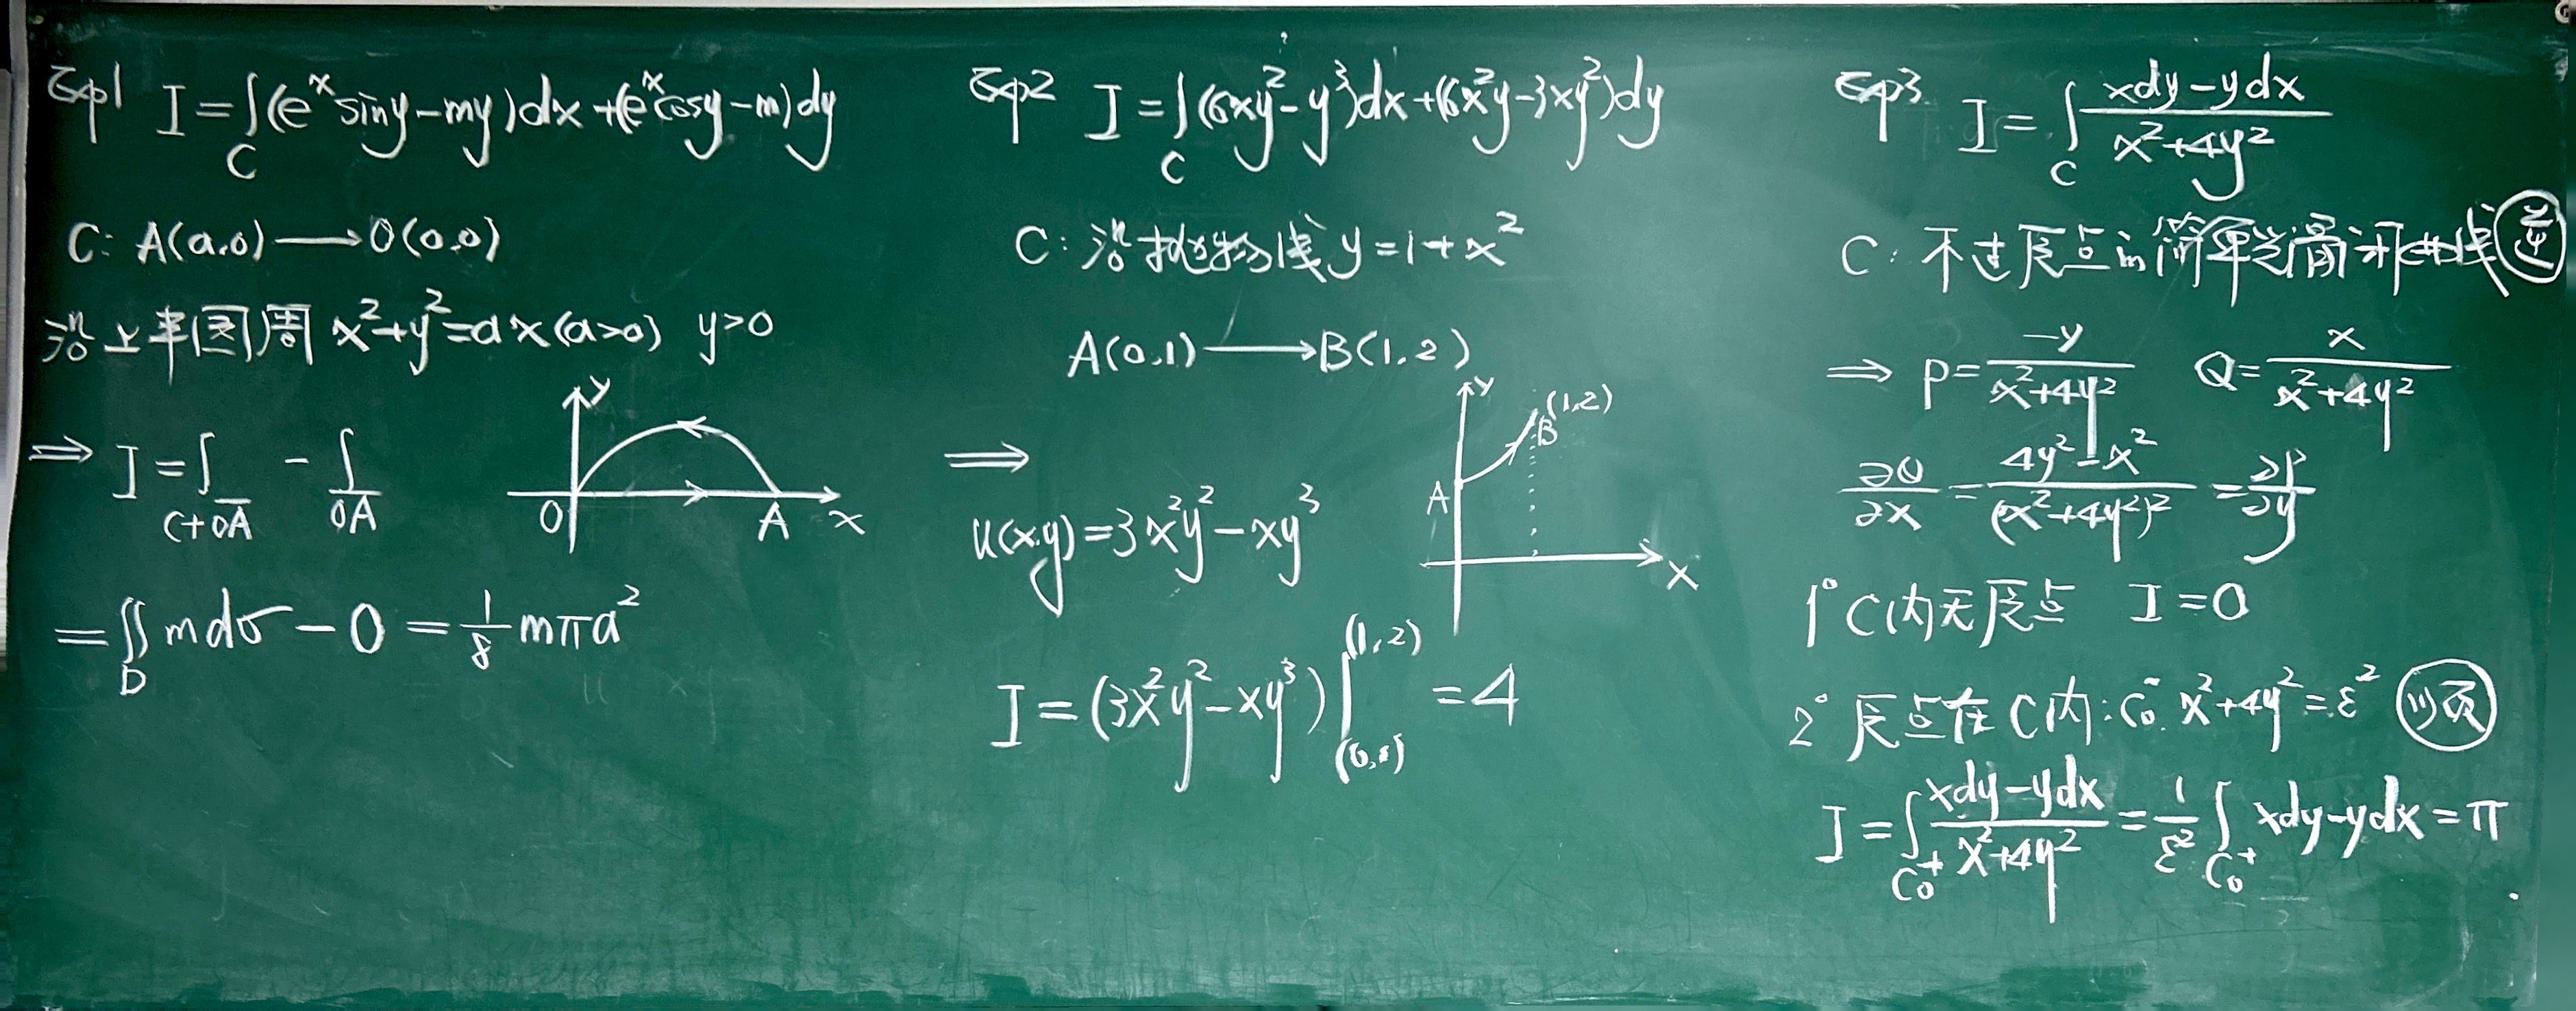 Exp1 I=∫_C(e^x siny-my)dx+(e^x cosy-m)dy
C: A(a,0)⟶O(0,0)
沿上半圆周 x²+y²=ax(a>0) y>0
⟹ I=∫_{C+OA} - ∫_{OA}
y
O A x
=∬_D mdσ-0=1/8 mπa²
Exp2 I=∫_C(6xy²-y³)dx+(6x²y-3xy²)dy
C: 沿抛物线y=1+x²
A(0,1)⟶B(1,2)
⟹
y
(1,2)
B
A
x
u(x,y)=3x²y²-xy³
I=(3x²y²-xy³)|_{(0,1)}^{(1,2)}=4
Exp3 I=∫_C (xdy-ydx)/(x²+4y²)
C: 不过原点的简单光滑闭曲线 逆
⟹ P=-y/(x²+4y²) Q=x/(x²+4y²)
∂Q/∂x=(4y²-x²)/(x²+4y²)²=∂P/∂y
1° C内无原点 I=0
2° 原点在C内: C₀⁻: x²+4y²=ε² 顺
I=∫_{C₀⁺} (xdy-ydx)/(x²+4y²)=1/ε² ∫_{C₀⁺} xdy-ydx=π